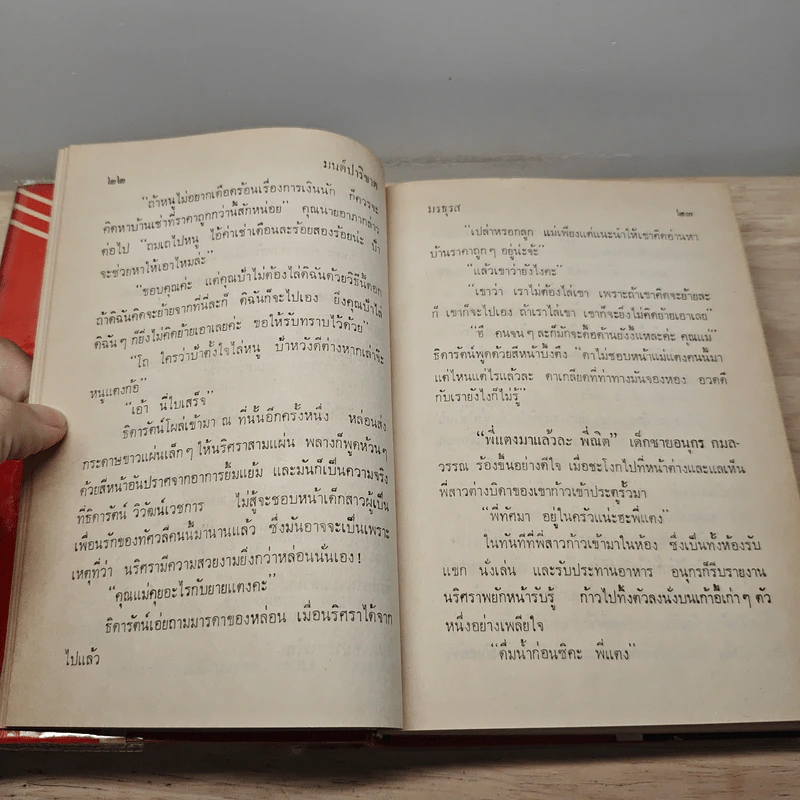 ๒๒ มนต์ปาริชาต
"ถ้าหนูไม่อยากเดือดร้อนเรื่องการเงินนัก ก็ควรจะ
คิดหาบ้านเช่าที่ราคาถูกกว่านี้สักหน่อย" คุณนายอาภากล่าว
ต่อไป "ถมเถไปหนู ไอ้ค่าเช่าเดือนละร้อยสองร้อยน่ะ ป้า
จะช่วยหาให้เอาไหมล่ะ"
"ขอบคุณค่ะ แต่คุณป้าไม่ต้องไล่ดิฉันด้วยวิธีนี้ดอก
ถ้าดิฉันคิดจะย้ายจากที่นี่ละก็ ดิฉันก็จะไปเอง ยิ่งคุณป้าไล่
ดิฉันๆ ก็ยิ่งไม่คิดย้ายเอาเลยค่ะ ขอให้รับทราบไว้ด้วย"
"โถ ใครว่าป้าตั้งใจไล่หนู ป้าหวังดีต่างหากเล่าจ้ะ
หนูแตงก้อ"
"เอ้า นี่ใบเสร็จ"
ธิดารัตน์โผล่เข้ามา ณ ที่นั้นอีกครั้งหนึ่ง หล่อนส่ง
กระดาษขาวแผ่นเล็กๆ ให้นริศราสามแผ่น พลางก็พูดห้วนๆ
ด้วยสีหน้าอันปราศจากอาการยิ้มแย้ม และมันก็เป็นความจริง
ที่ธิดารัตน์ วิวัฒน์เวชการ ไม่สู้จะชอบหน้าเด็กสาวผู้เป็น
เพื่อนรักของทัศวลีคนนี้มานานแล้ว ซึ่งมันอาจจะเป็นเพราะ
เหตุที่ว่า นริศรามีความสวยงามยิ่งกว่าหล่อนนั่นเอง!
"คุณแม่คุยอะไรกับยายแตงคะ"
ธิดารัตน์เอ่ยถามมารดาของหล่อน เมื่อนริศราได้จาก
ไปแล้ว
มรธุรส ๒๓
"เปล่าหรอกลูก แม่เพียงแต่แนะนำให้เขาคิดอ่านหา
บ้านราคาถูกๆ อยู่น่ะจ้ะ"
"แล้วเขาว่ายังไงคะ"
"เขาว่า เราไม่ต้องไล่เขา เพราะถ้าเขาคิดจะย้ายละ
ก็ เขาก็จะไปเอง ถ้าเราไล่เขา เขาก็จะยิ่งไม่คิดย้ายเอาเลย"
"ฮึ คนจนๆ ละก็มักจะดื้อด้านยังงี้แหละค่ะ คุณแม่"
ธิดารัตน์พูดด้วยสีหน้าบึ้งตึง "ดาไม่ชอบหน้าแม่แตงคนนี้มา
แต่ไหนแต่ไรแล้วละ ดาเกลียดที่ท่าทางมันจองหอง อวดดี
กับเรายังไงก็ไม่รู้"
"พี่แตงมาแล้วละ พี่ณิต" เด็กชายอนุกร กมล-
วรรณ ร้องขึ้นอย่างดีใจ เมื่อชะโงกไปที่หน้าต่างและแลเห็น
พี่สาวต่างบิดาของเขาก้าวเข้าประตูรั้วมา
"พี่ทัศมา อยู่ในครัวแน่ะฮะพี่แตง"
ในทันทีที่พี่สาวก้าวเข้ามาในห้อง ซึ่งเป็นทั้งห้องรับ
แขก นั่งเล่น และรับประทานอาหาร อนุกรก็รีบรายงาน
นริศราพยักหน้ารับรู้ ก้าวไปทิ้งตัวลงนั่งบนเก้าอี้เก่าๆ ตัว
หนึ่งอย่างเพลียใจ
"ดื่มน้ำก่อนซิคะ พี่แตง"